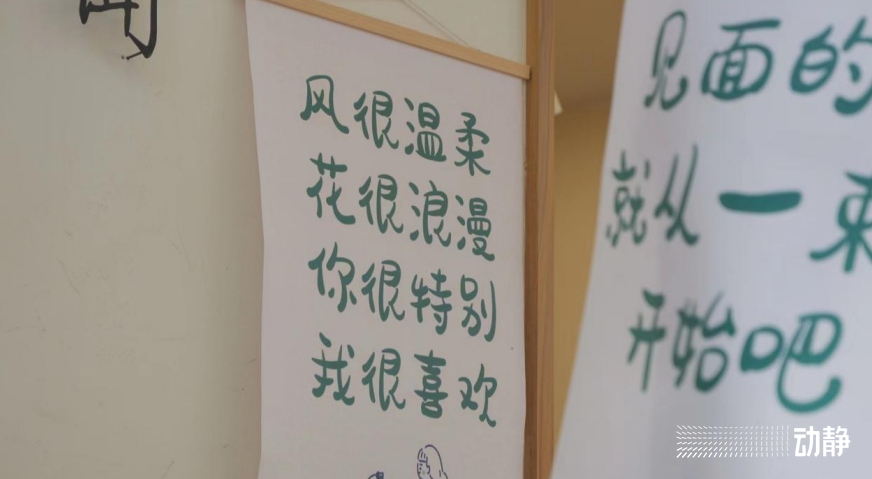 风很温柔
花很浪漫
你很特别
我很喜欢
见面的
就从一束
开始吧
动静